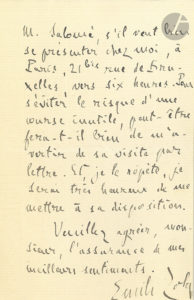 M. Salomé, s'il veut bien
se présenter chez moi, à
Paris, 21 bis rue de Bru-
xelles, vers six heures. Pour
éviter le risque d'une
course inutile, peut-être
fera-t-il bien de m'a-
vertir de sa visite par
lettre. Et, je le répète, je
serai très heureux de me
mettre à sa disposition.
Veuillez agréer, mon-
sieur, l'assurance de mes
meilleurs sentiments.
Emile Zola